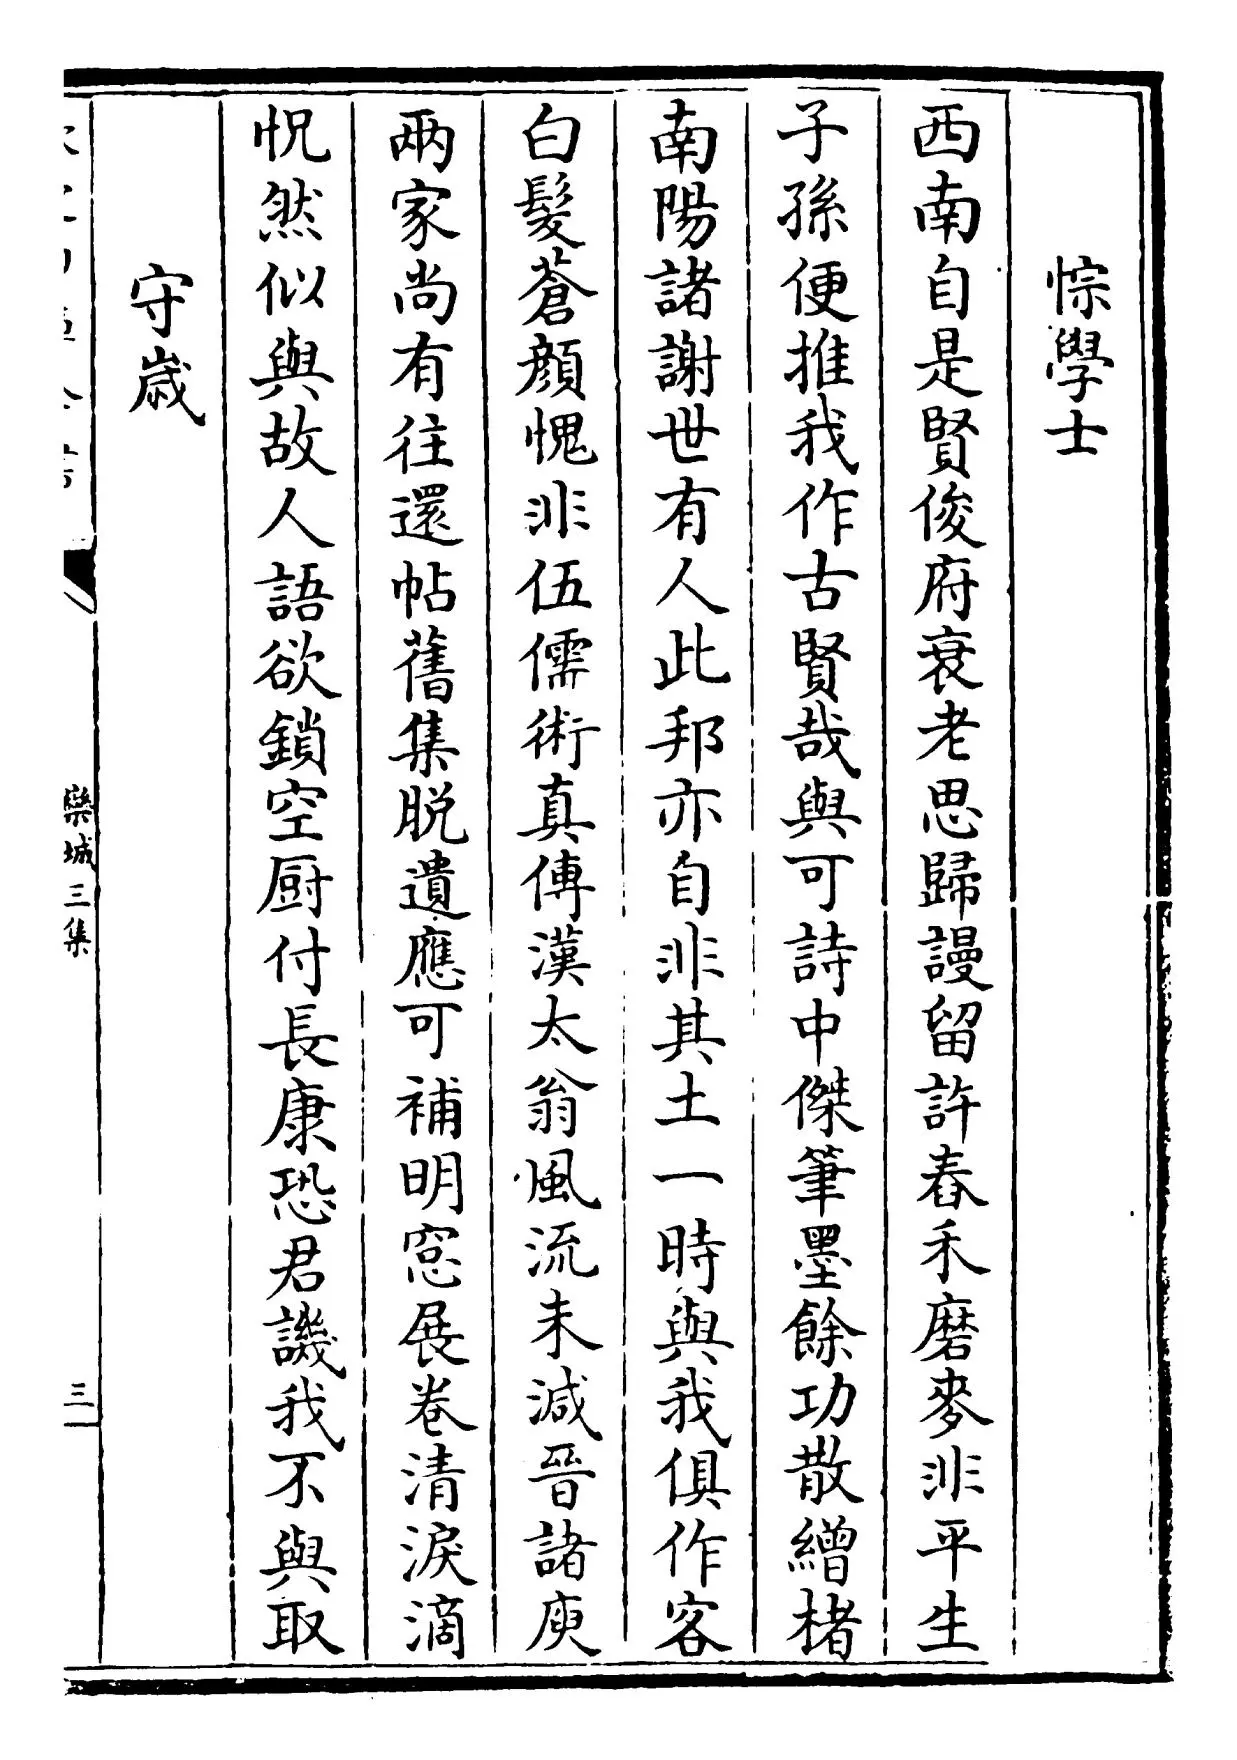 悰學士
西南自是賢俊府衰老思歸謾留許舂禾磨麥非平生
子孫便推我作古賢哉與可詩中傑筆墨餘功散繒楮
南陽諸謝世有人此邦亦自非其土一時與我俱作客
白髮蒼顔愧非伍儒術真傳漢太翁風流未減晉諸庾
兩家尚有往還帖舊集脱遺應可補明窓展卷清淚滴
怳然似與故人語欲鎖空厨付長康恐君譏我不與取
守歳
欒城三集
三